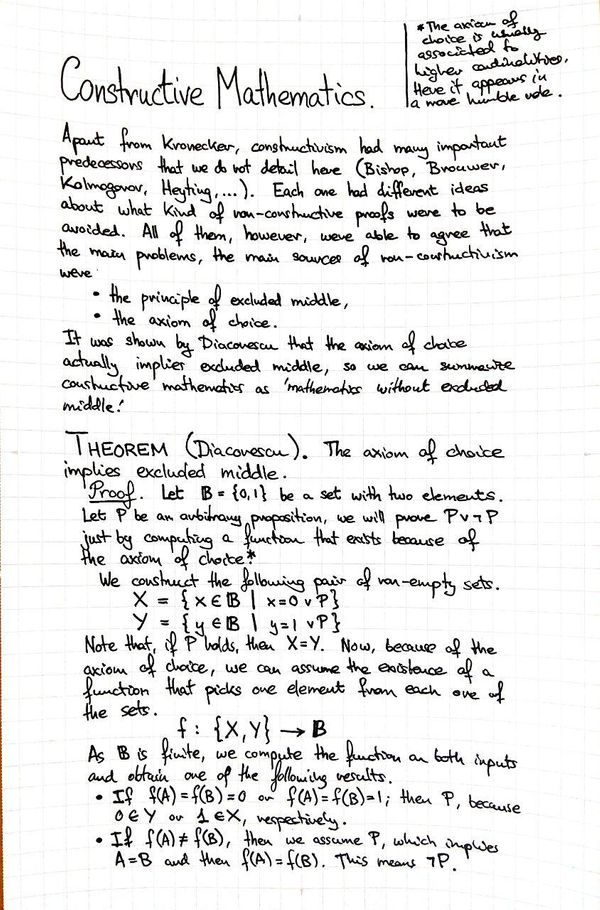 *The axiom of
choice is usually
associated to
higher cardinalities,
Here it appears in
a more humble role.
Constructive Mathematics.
Apart from Kronecker, constructivism had many important
predecessors that we do not detail here (Bishop, Brouwer,
Kolmogorov, Heyting,...). Each one had different ideas
about what kind of non-constructive proofs were to be
avoided. All of them, however, were able to agree that
the main problems, the main sources of non-constructivism
were
• the principle of excluded middle,
• the axiom of choice.
It was shown by Diaconescu that the axiom of choice
actually implies excluded middle, so we can summarize
constructive mathematics as 'mathematics without excluded
middle.'
THEOREM (Diaconescu). The axiom of choice
implies excluded middle.
Proof. Let 𝔹 = {0,1} be a set with two elements.
Let P be an arbitrary proposition, we will prove P∨¬P
just by computing a function that exists because of
the axiom of choice.*
We construct the following pair of non-empty sets.
X = {x∈𝔹 | x=0 ∨ P}
Y = {y∈𝔹 | y=1 ∨ P}
Note that, if P holds, then X=Y. Now, because of the
axiom of choice, we can assume the existence of a
function that picks one element from each one of
the sets.
f: {X,Y} → 𝔹
As 𝔹 is finite, we compute the function on both inputs
and obtain one of the following results.
• If f(A)=f(B)=0 or f(A)=f(B)=1; then P, because
0∈Y or 1∈X, respectively.
• If f(A)≠f(B), then we assume P, which implies
A=B and then f(A)=f(B). This means ¬P.